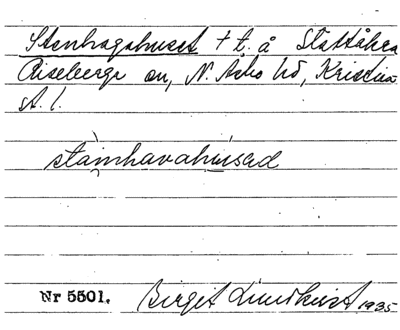 Stenhagahuset † t. å Stattåkra
Riseberga sn, N. Åsbo hd, Kristia
st. l.
stainhavahusad
Nr 5501. Birgit Lundkvist 1935